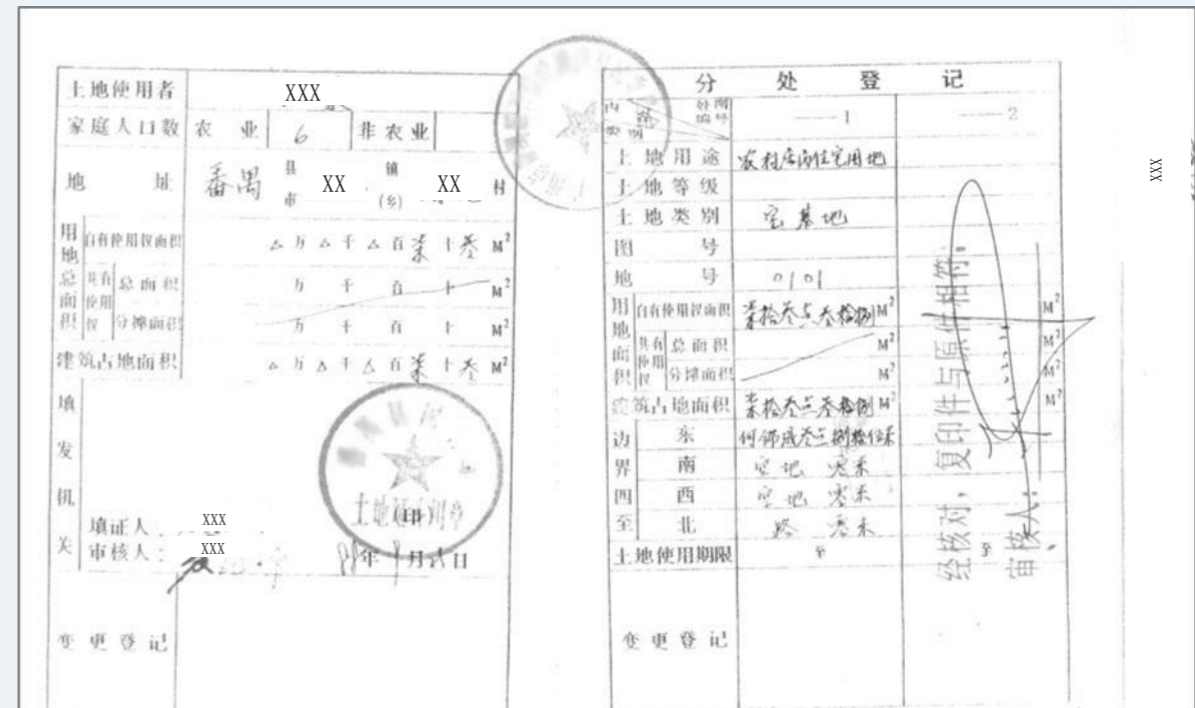 土地使用者 XXX
家庭人口数 农业 6 非农业
地址 番禺 县 市 XX 镇 (乡) XX 村
用地总面积
自有使用权面积 △万△千△百柒十叁 M²
共有使用权 总面积 万 千 百 十 M²
分摊面积 万 千 百 十 M²
建筑占地面积 △万△千△百柒十叁 M²
填发机关
土地证专用章
(印)
填证人: XXX
审核人: XXX
年 月 日
变更登记
分处登记
内容 类别 处所编号 ——1 ——2
土地用途 农村居民住宅用地
土地等级
土地类别 宅基地
图号
地号 0101
用地面积
自有使用权面积 柒拾叁点叁拾捌 M² M²
共有使用权 总面积 M²
分摊面积 M² M²
建筑占地面积 柒拾叁点叁拾捌 M² M²
边界四至
东
南 空地 零米
西 空地 零米
北 路 零米
土地使用期限 至 至
变更登记
经核对,复印件与原件相符。
审核人:
XXX